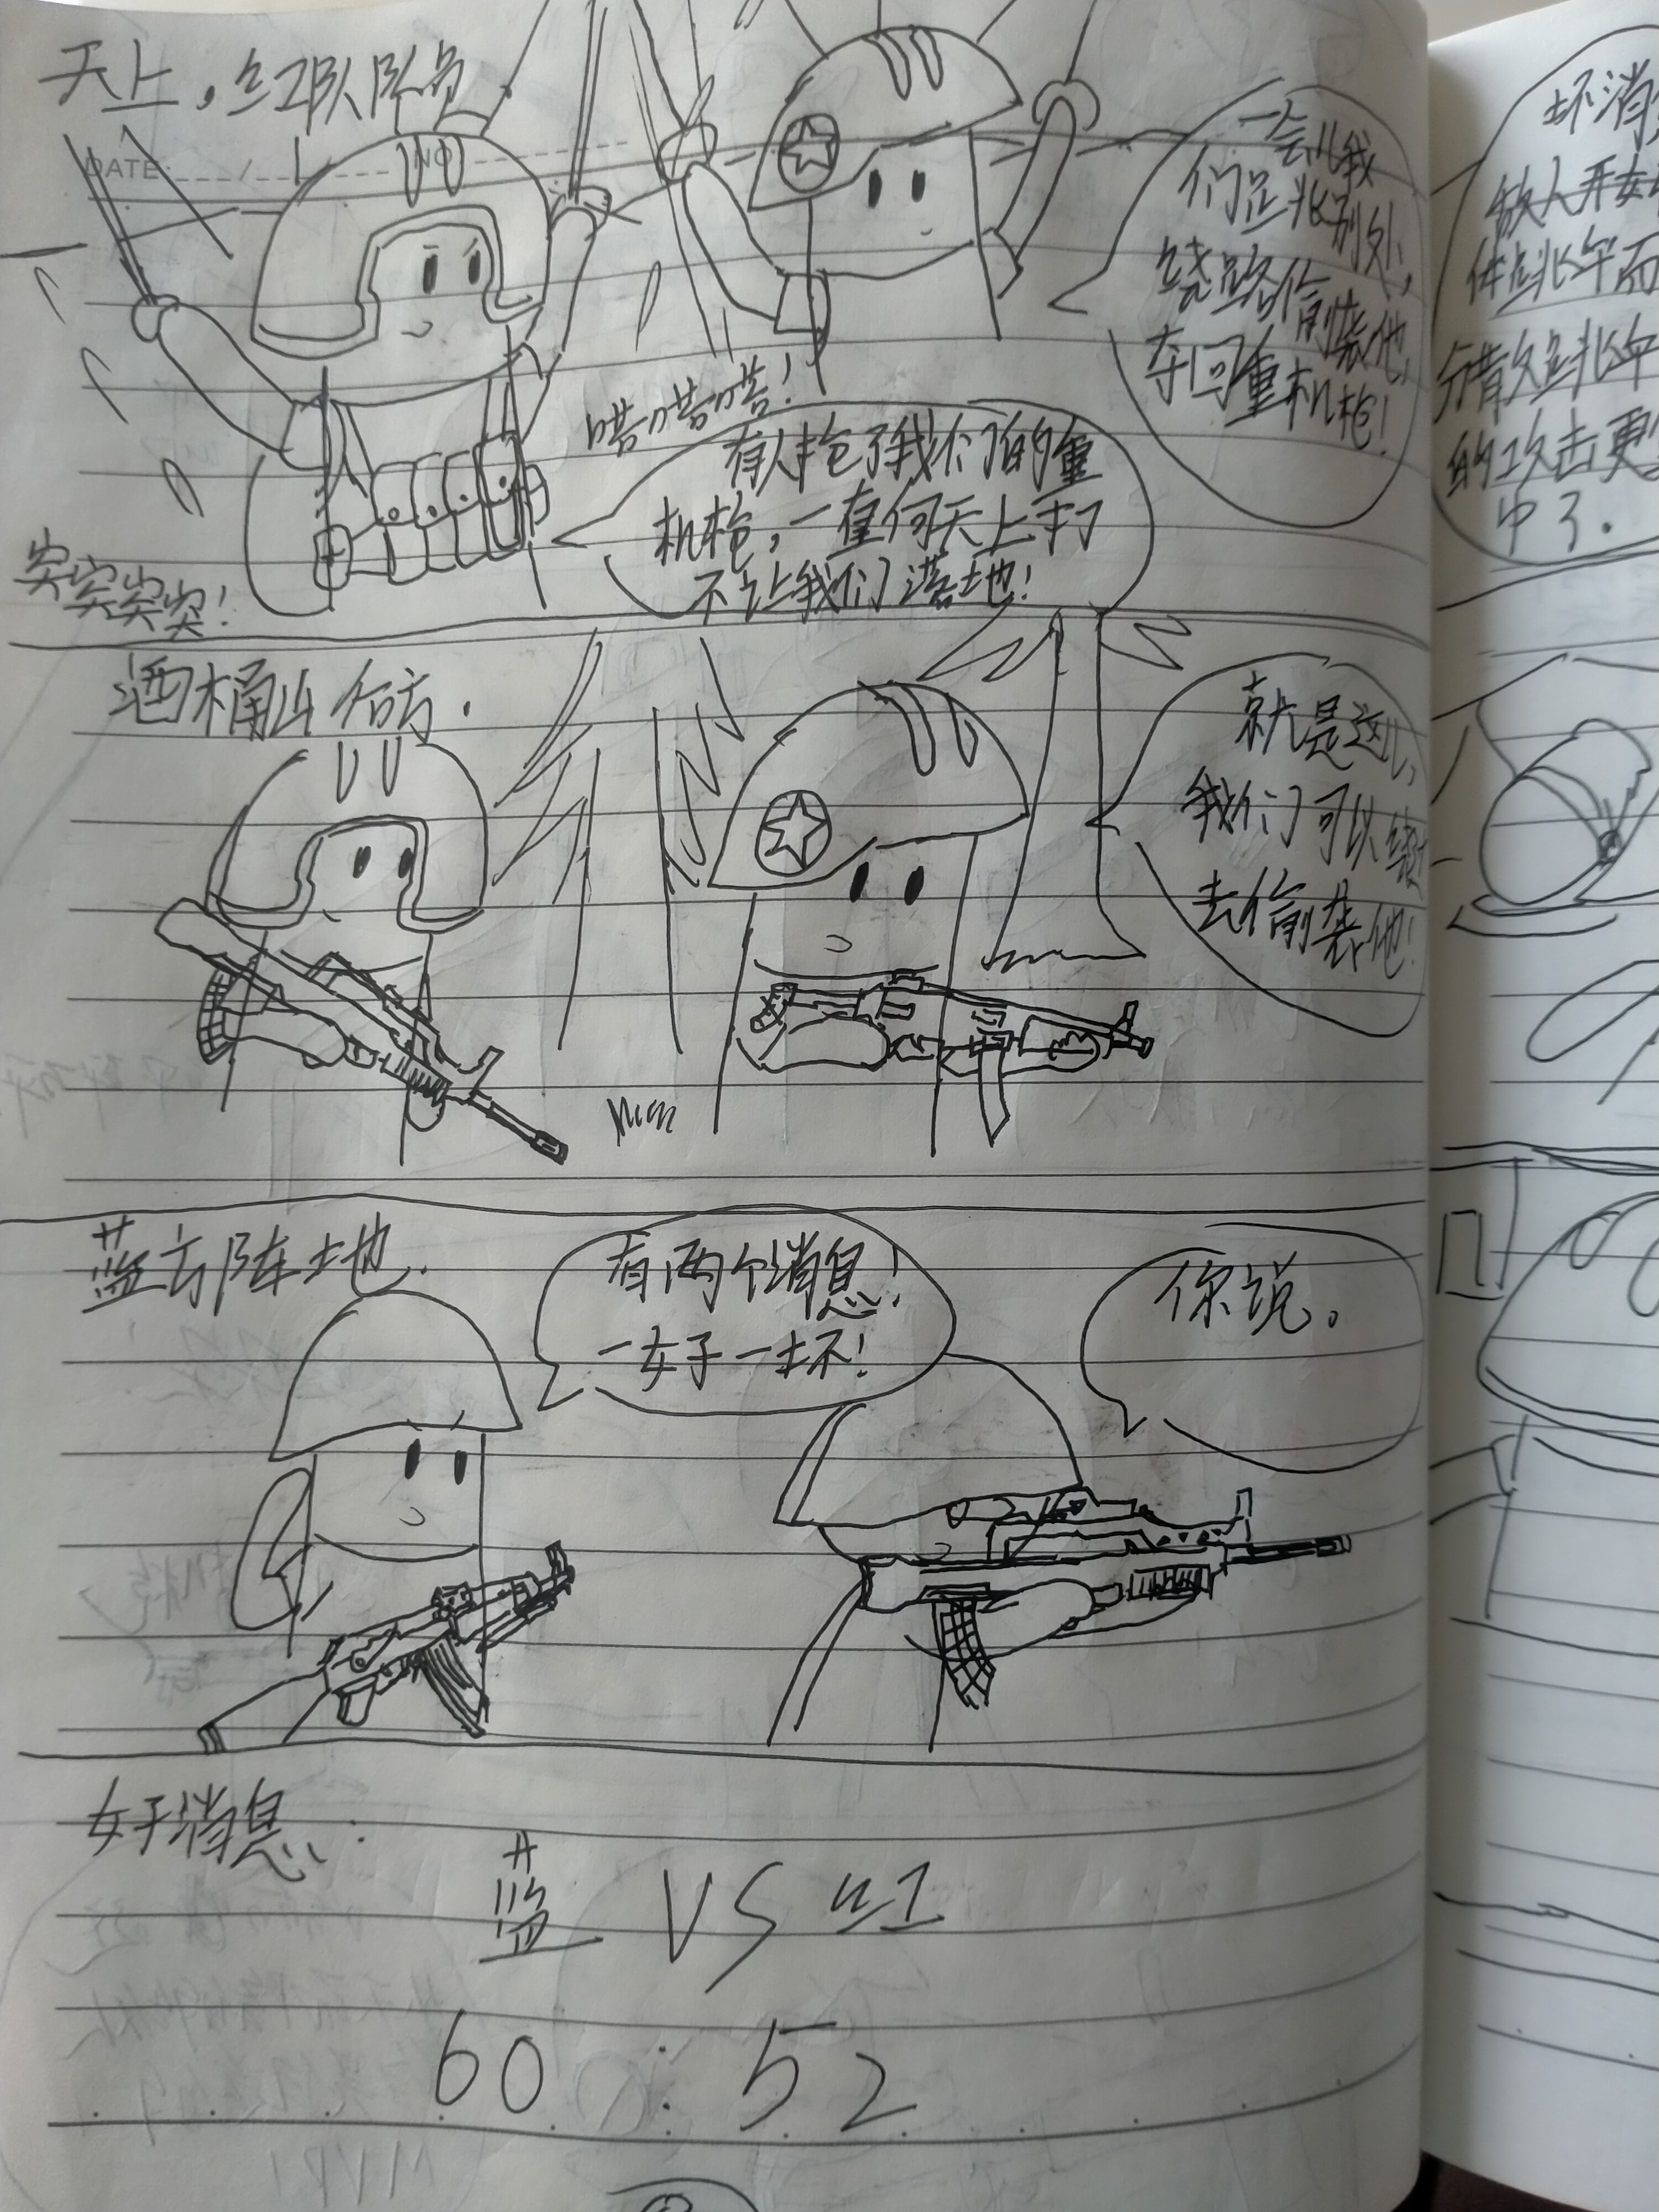 天上，红队队员
DATE
NO
一会儿我
们兆别处，
绕路偷袭他，
夺回重机枪！
嗒嗒嗒！
有人抢了我们的重
机枪，一直向天上打
不让我们落地！
突突突突！
酒桶山右方.
就是这儿，
我们可以绕
去偷袭他！
蓝方阵地.
有两个消息！
一好一坏！
你说。
好消息：
蓝 VS 红
60：52
坏消
敌人开始
而
分散
的攻击更
中了.